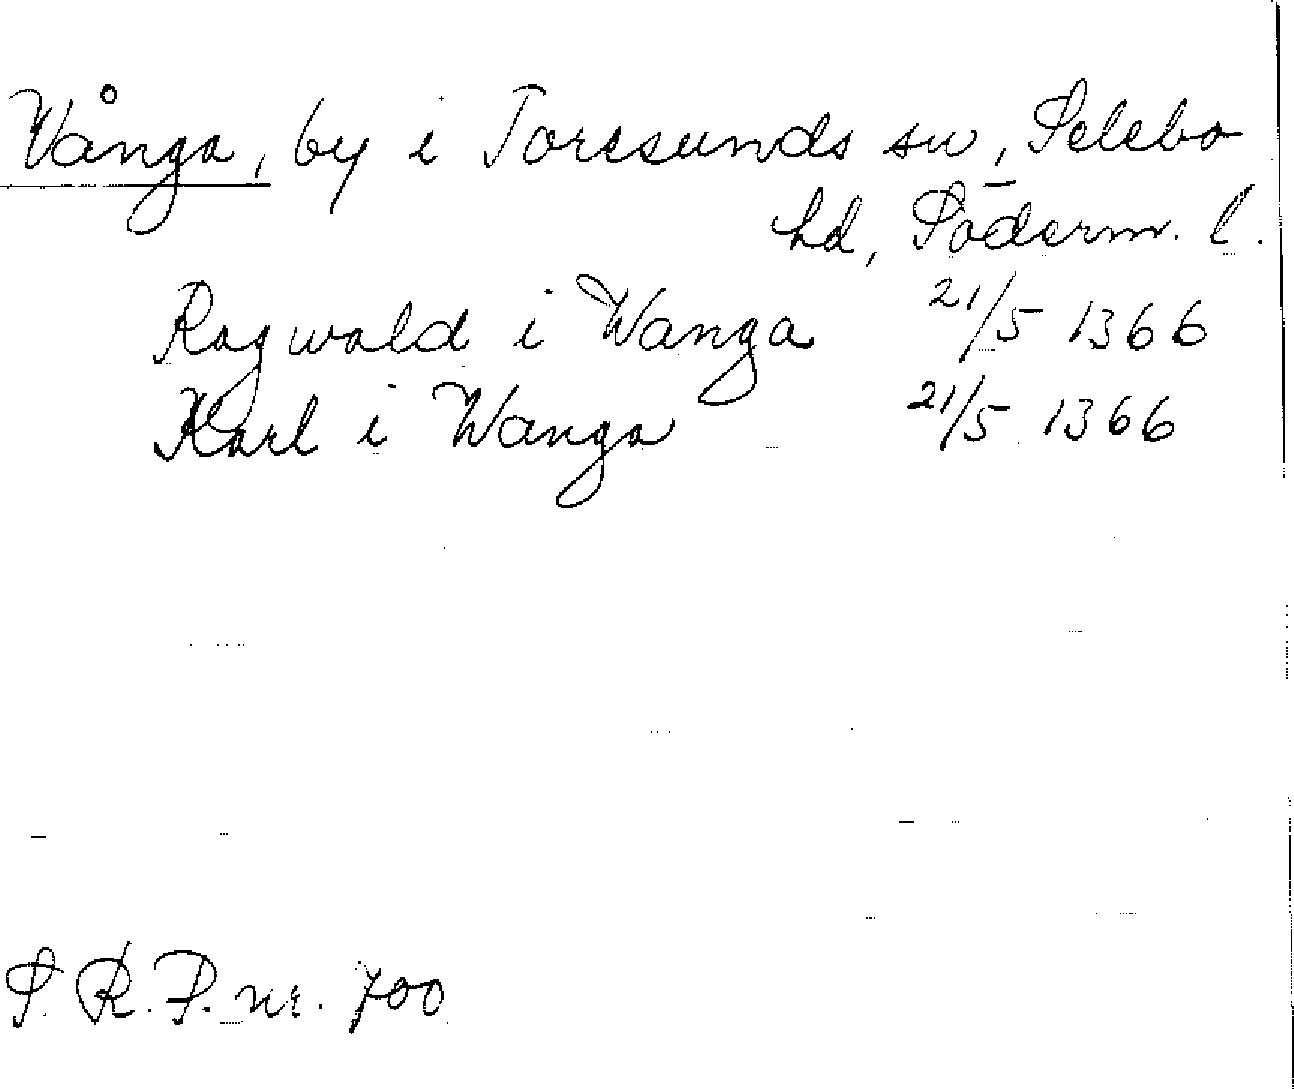 Vånga, by i Toresunds sn, Selebo
hd, Söderm. l.
Ragwald i Wanga 21/5 1366
Karl i Wanga 21/5 1366
S. R. P. nr. 700